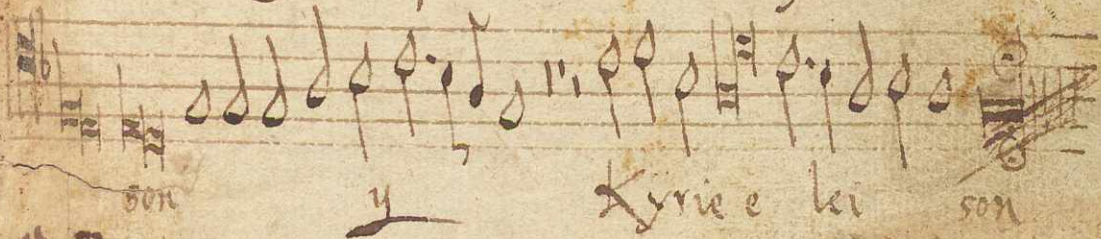 son y Kyrie e lei son